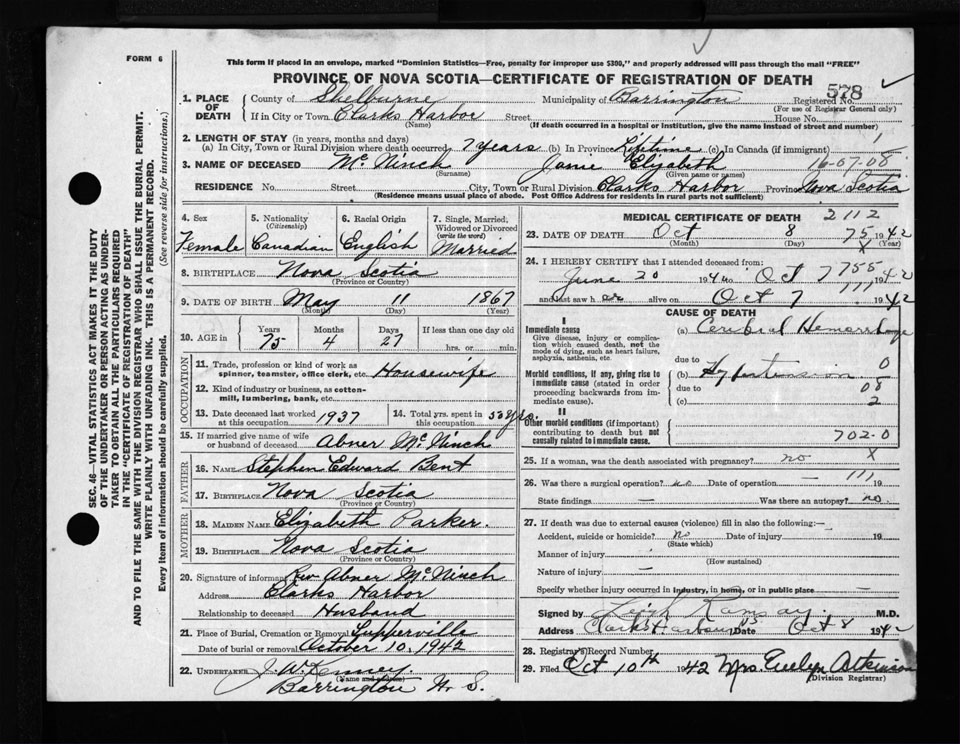 FORM 6
This form if placed in an envelope, marked "Dominion Statistics—Free, penalty for improper use $300," and properly addressed will pass through the mail "FREE"
PROVINCE OF NOVA SCOTIA—CERTIFICATE OF REGISTRATION OF DEATH
578
1. PLACE OF DEATH County of Shelburne Municipality of Barrington Registered No.
(For use of Registrar General only)
If in City or Town Clarks Harbor Street House No.
(Name) (If death occurred in a hospital or institution, give the name instead of street and number)
2. LENGTH OF STAY (in years, months and days)
(a) In City, Town or Rural Division where death occurred 7 years (b) In Province Lifetime (c) In Canada (if immigrant)
3. NAME OF DECEASED McNinch Janie Elizabeth 16-07-08
(Surname) (Given name or names)
RESIDENCE No. Street City, Town or Rural Division Clarks Harbor Province Nova Scotia
(Residence means usual place of abode. Post Office Address for residents in rural parts not sufficient)
4. Sex Female
5. Nationality (Citizenship) Canadian
6. Racial Origin English
7. Single, Married, Widowed or Divorced (write the word) Married
8. BIRTHPLACE Nova Scotia
(Province or Country)
9. DATE OF BIRTH May 11 1867
(Month) (Day) (Year)
10. AGE in Years 75 Months 4 Days 27 If less than one day old hrs. or min.
OCCUPATION
11. Trade, profession or kind of work as spinner, teamster, office clerk, etc. Housewife
12. Kind of industry or business, as cotton-mill, lumbering, bank, etc.
13. Date deceased last worked at this occupation 1937
14. Total yrs. spent in this occupation 50 yrs.
15. If married give name of wife or husband of deceased Abner McNinch
FATHER
16. NAME Stephen Edward Bent
17. BIRTHPLACE Nova Scotia
(Province or Country)
MOTHER
18. MAIDEN NAME Elizabeth Parker.
19. BIRTHPLACE Nova Scotia
(Province or Country)
20. Signature of informant Rev Abner McNinch
Address Clarks Harbor
Relationship to deceased Husband
21. Place of Burial, Cremation or Removal Tupperville
Date of burial or removal October 10, 1942
22. UNDERTAKER J. W. Kenney.
(Name and address)
Barrington N. S.
MEDICAL CERTIFICATE OF DEATH 2112
23. DATE OF DEATH Oct 8 75 1942
(Month) (Day) X (Year)
24. I HEREBY CERTIFY that I attended deceased from:
June 20 1940 to Oct 7 755 1942
and last saw her alive on Oct 7 111 1942
CAUSE OF DEATH
I
Immediate cause (a) Cerebral Hemorrhage
Give disease, injury or complication which caused death, not the mode of dying, such as heart failure, asphyxia, asthenia, etc.
due to 0
Morbid conditions, if any, giving rise to immediate cause (stated in order proceeding backwards from immediate cause). (b) Hypertension
due to 08
(c) 2
II
Other morbid conditions (if important) contributing to death but not causally related to immediate cause. 702-0
25. If a woman, was the death associated with pregnancy? no X
26. Was there a surgical operation? no Date of operation — 111 19
State findings — Was there an autopsy? no.
27. If death was due to external causes (violence) fill in also the following:—
Accident, suicide or homicide? no Date of injury 19
(State which)
Manner of injury
(How sustained)
Nature of injury —
Specify whether injury occurred in industry, in home, or in public place —
Signed by Leigh Ramsay. M.D.
Address Clarks Harbour NS Date Oct 8 1942
28. Registrar's Record Number
29. Filed Oct 10th 1942 Mrs Evelyn Atkinson
(Division Registrar)
SEC. 46—VITAL STATISTICS ACT MAKES IT THE DUTY
OF THE UNDERTAKER OR PERSON ACTING AS UNDER-
TAKER TO OBTAIN ALL THE PARTICULARS REQUIRED
IN THE "CERTIFICATE OF REGISTRATION OF DEATH"
AND TO FILE THE SAME WITH THE DIVISION REGISTRAR WHO SHALL ISSUE THE BURIAL PERMIT.
WRITE PLAINLY WITH UNFADING INK. THIS IS A PERMANENT RECORD.
Every item of information should be carefully supplied. (See reverse side for instructions.)